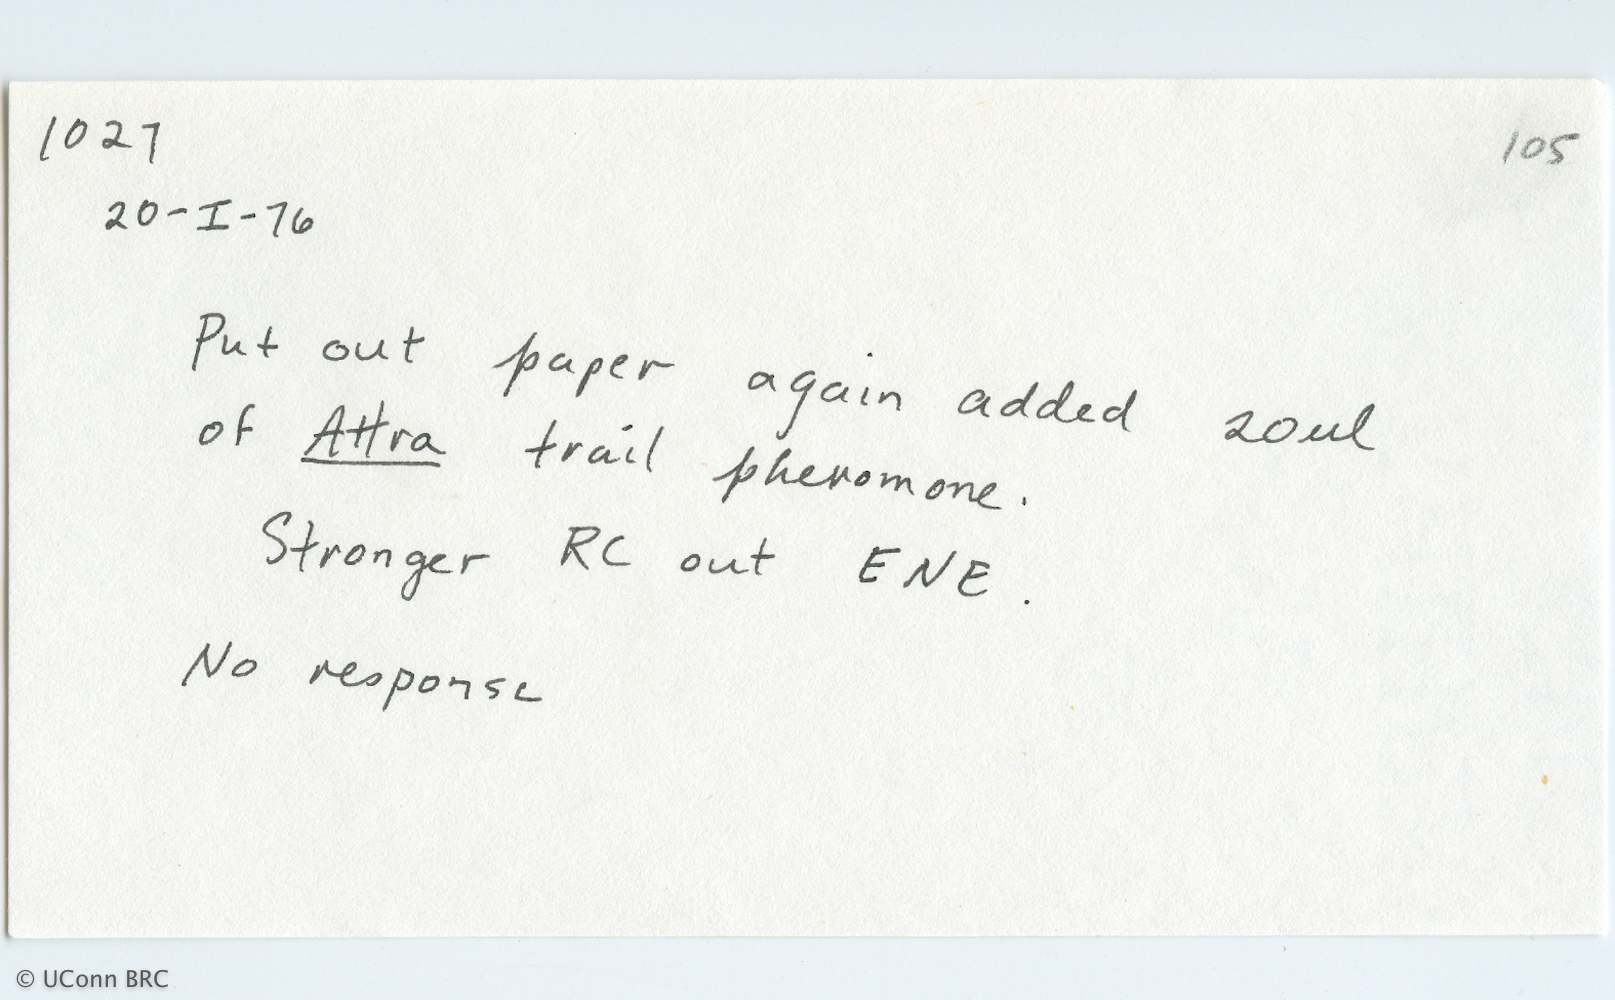 1027
105
20-I-76
Put out paper again added 20ul
of Attra trail pheromone.
Stronger RC out ENE.
No response
© UConn BRC